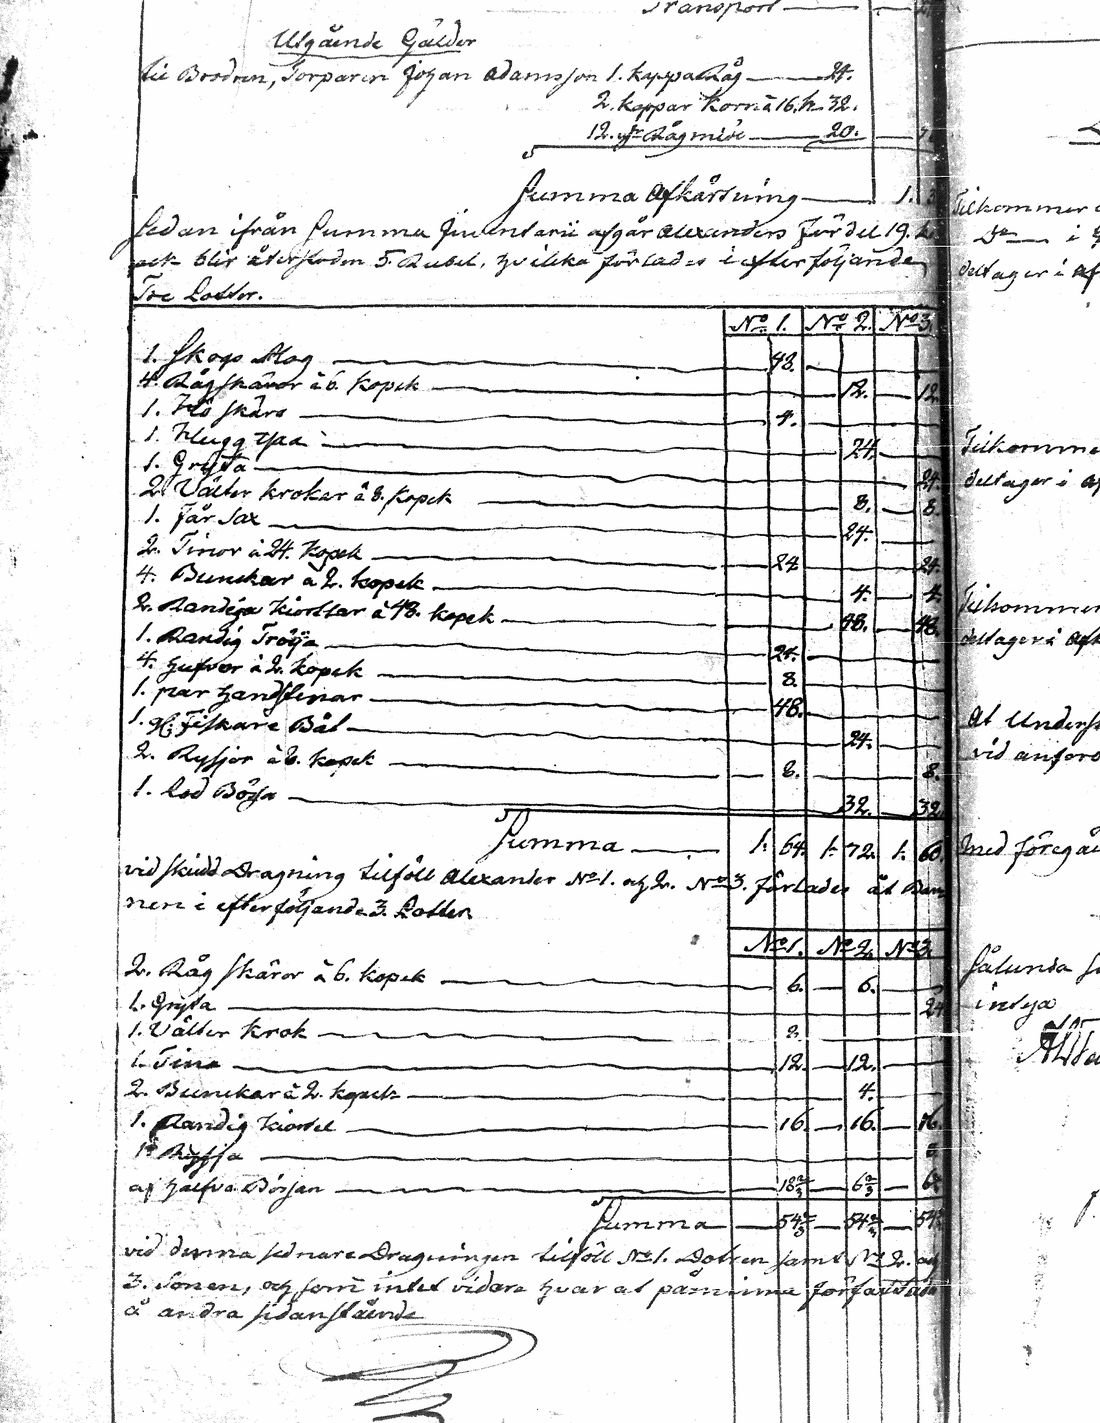 Transport
Utgående Gälder
til Brodren, Torparen Johan Adamsson 1. kappa Råg 24.
2. kappar Korn à 16. k. 32.
12. Rågmiöl 20.
Summa Afkårtning 1.
Sedan ifrån Summa Inventarii afgår Alexanders Fördel 19.
och blir återstoden 5. Rubel, hvilka förlades i efterföljande
Tre Lotter.
No 1. No 2. No 3.
1. Skogs 48.
4. Råg skäror à 6. kopek 12. 12.
1. Hö skära 4.
1. Hugg 24.
1. Gryta 24.
2. Välter krokar à 8. kopek 8. 8.
1. Får Sax 24.
2. Tinor à 24. kopek 24. 24.
4. Bunckar à 2. kopek 4. 4.
2. Randiga kiortlar à 48. kopek 48. 48.
1. Randig Tröija 24.
4. hufvor à 2. kopek 8.
1. par handskinar 48.
1. Fiskare Båt 24.
2. Ryssjor à 8. kopek 8. 8.
1. Lod Bössa 32. 32.
Summa 1. 64. 1. 72. 1. 60.
vid skedd Dragning tilföll Alexander No 1. och 2. No 3. förlades åt Bar
nen i efterföljande 3. Lotter
No 1. No 2. No 3.
2. Råg skäror à 6. kopek 6. 6.
1. Gryta 24
1. Välter krok 8.
1. Tina 12. 12.
2. Bunckar à 2. kopek 4.
1. Randig kiortel 16. 16. 16.
1 Ryssja
af halfva Bössan 18 2/3 6 2/3 6
Summa 54 2/3 54 2/3 54
vid denna sednare Dragningen tilföll No 1. Dotren samt No 2. och
3. Sonen, och som intet vidare hvar at påminna författades
å andra sidan stående
Tilkommer
Do i
deltager i
Tilkommer
deltager i
Tilkommer
deltager i
At Unders
vid anförd
med föregå
Sålunda
intyga